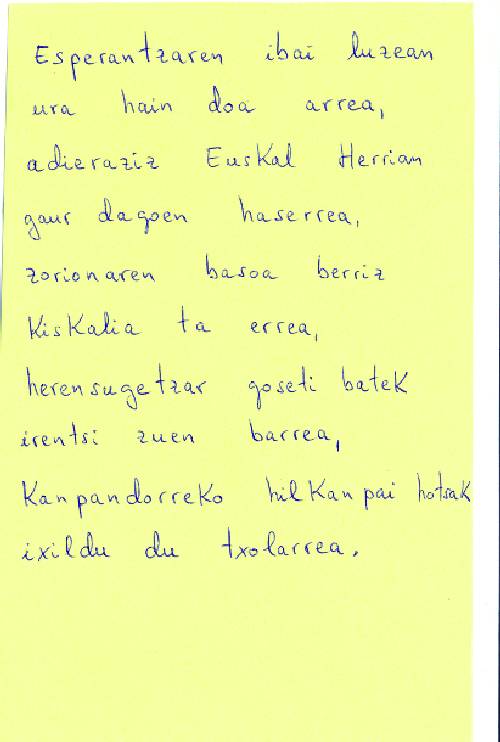 Esperantzaren ibai luzean
ura hain doa arrea,
adieraziz Euskal Herrian
gaur dagoen haserrea,
zorionaren basoa berriz
kiskalia ta errea,
herensugetzar goseti batek
irentsi zuen barrea,
kanpandorreko hilkanpai hotsak
ixildu du txolarrea.